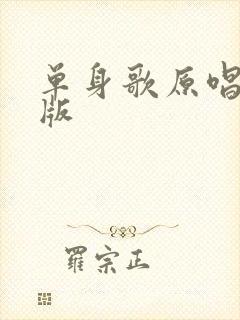 单身歌原唱
版
羅宗正